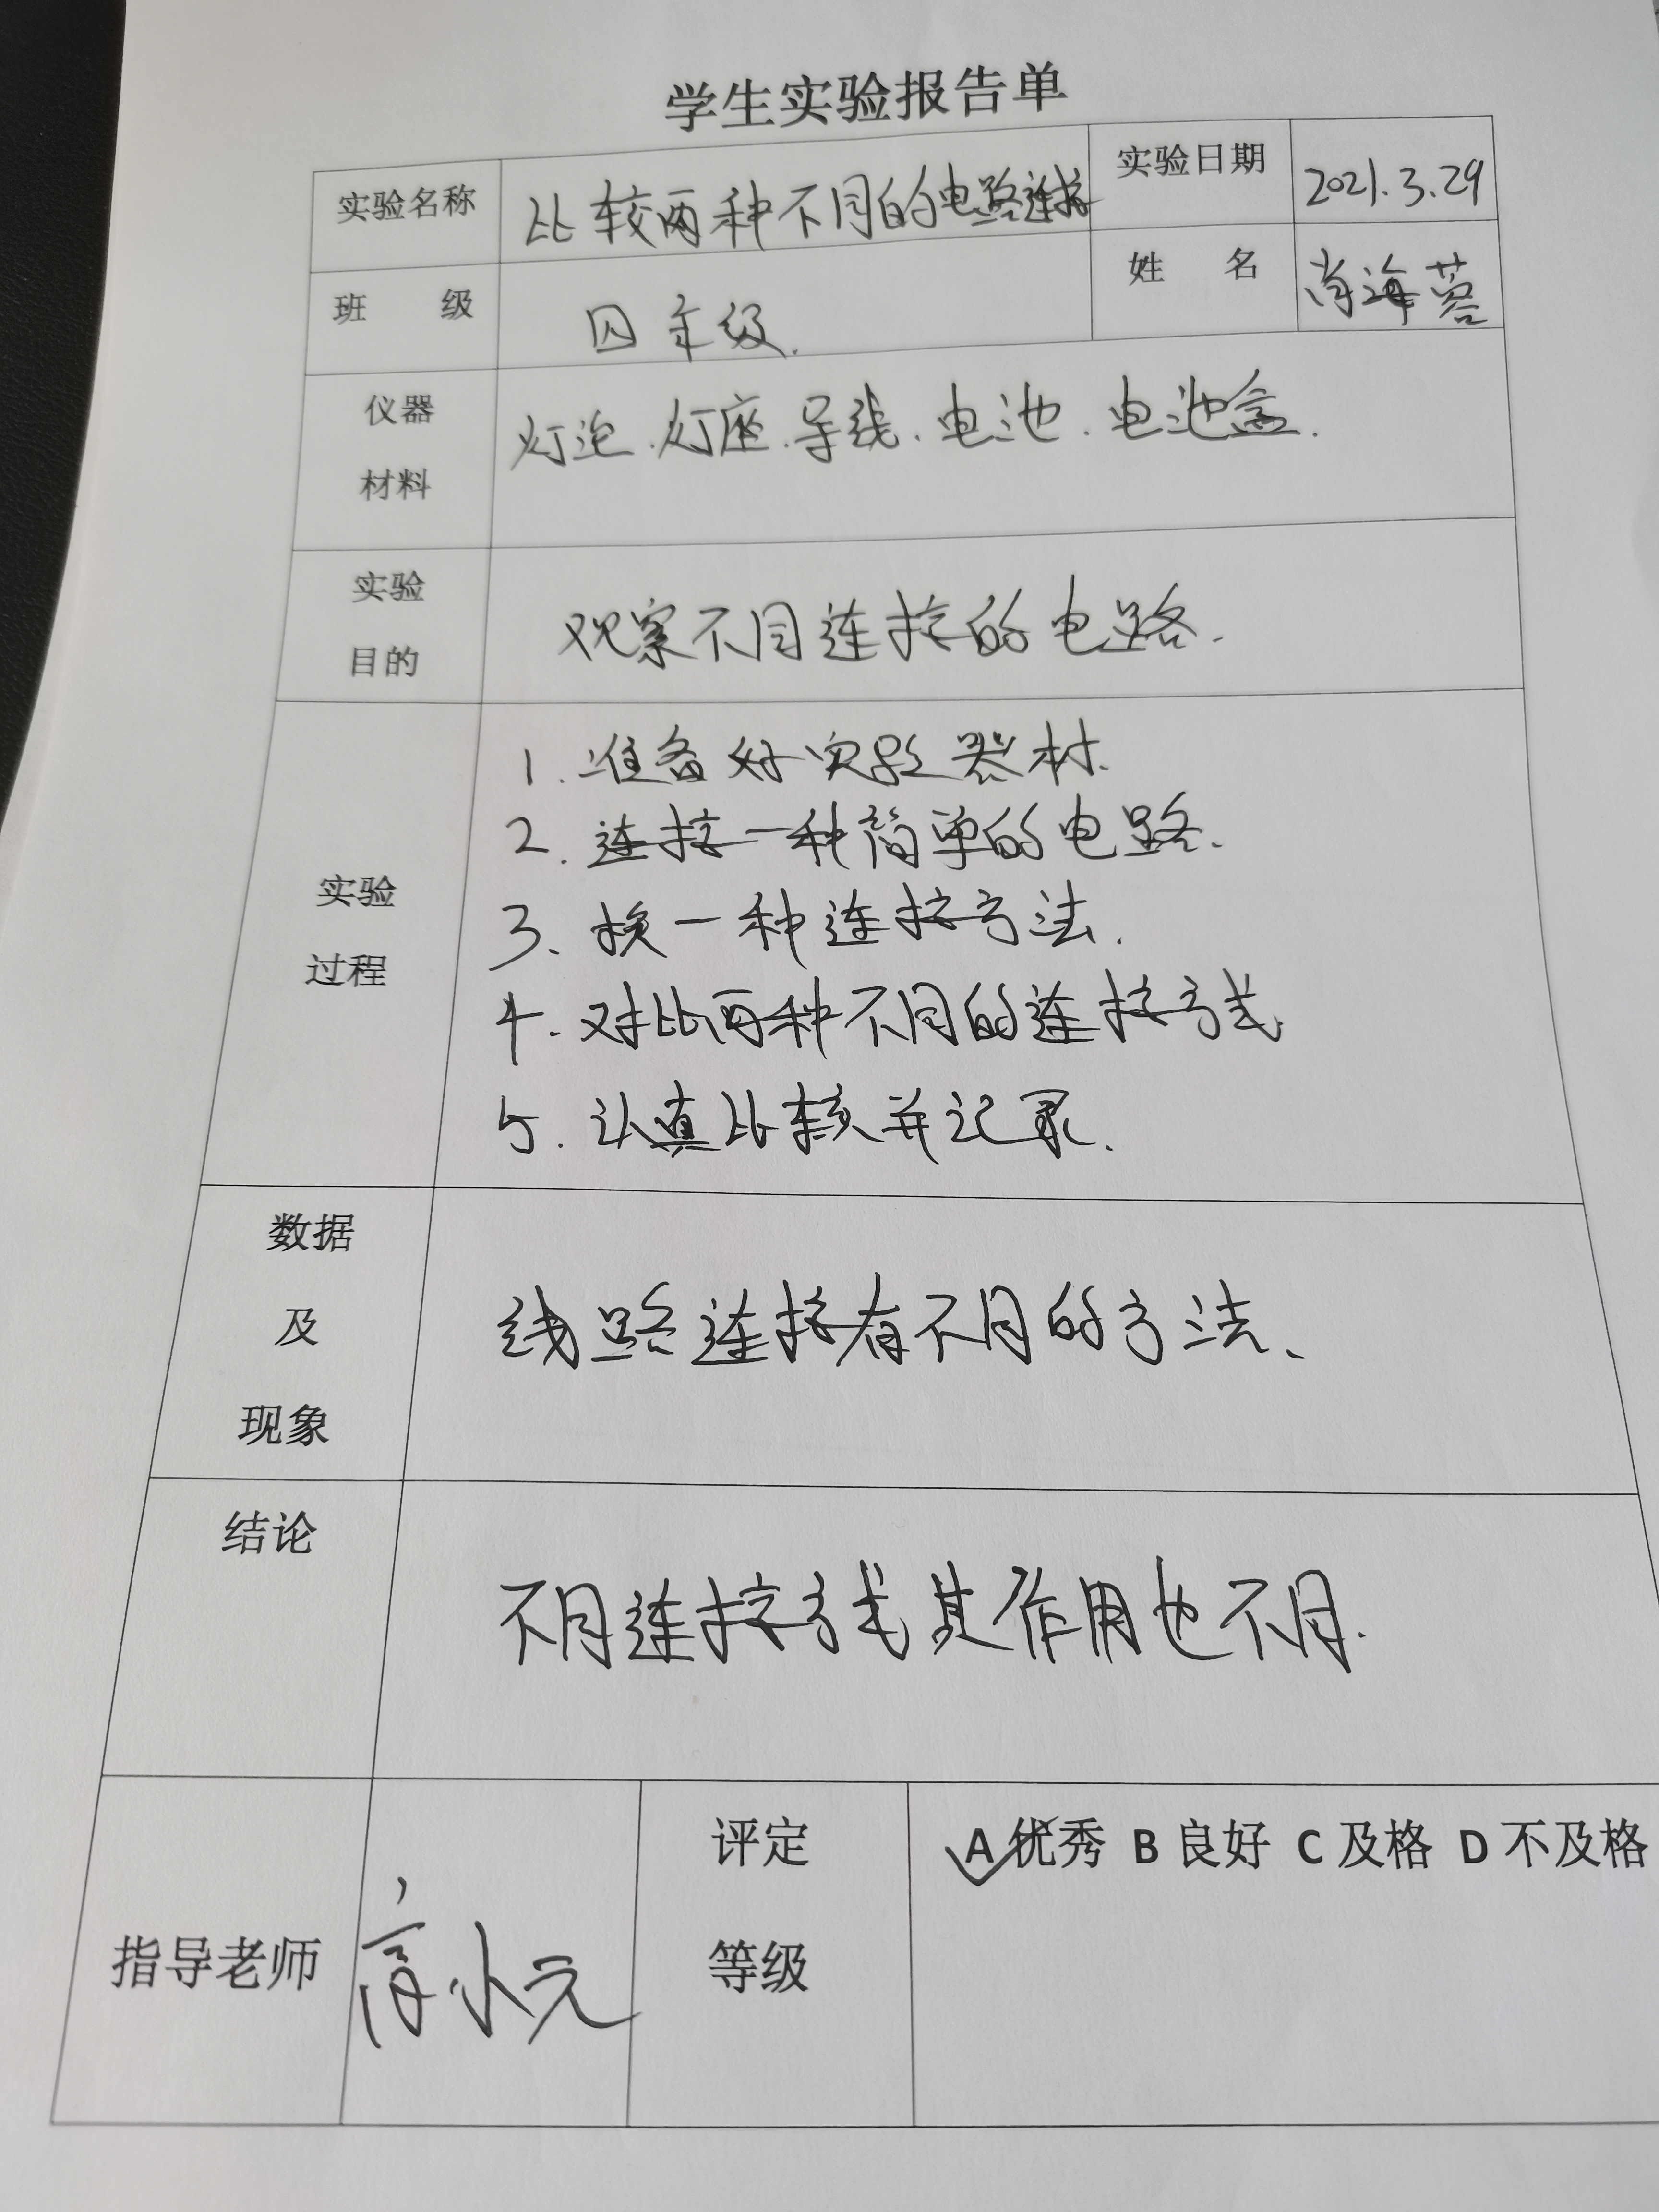 学生实验报告单
实验名称 比较两种不同的电路连接 实验日期 2021.3.29
班 级 四年级. 姓 名 肖海蓉
仪器 灯泡.灯座.导线.电池.电池盒.
材料
实验 观察不同连接的电路.
目的
1.准备好实验器材.
2.连接一种简单的电路.
实验 3、换一种连接方法.
过程 4.对比两种不同的连接方式
5.认真比较并记录.
数据
及 线路连接有不同的方法、
现象
结论 不同连接方式其作用也不同.
评定 A 优秀 B 良好 C 及格 D 不及格
指导老师 高小元 等级